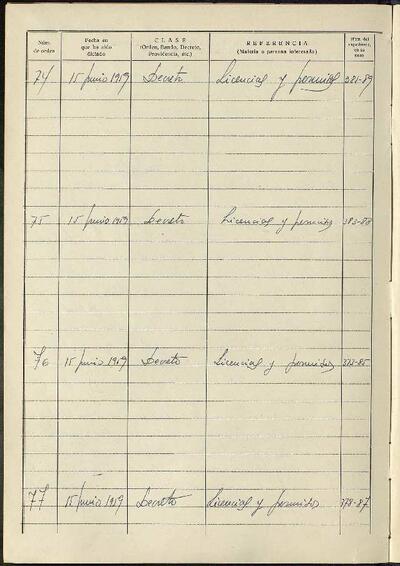 Núm. de orden
Fecha en que ha sido dictado
CLASE (Orden, Bando, Decreto, Providencia, etc.)
REFERENCIA (Materia o persona interesada)
74 15 Junio 1959 Decreto Licencias y permisos 381-89
75 15 Junio 1959 Decreto Licencias y permisos 383-88
76 15 Junio 1959 Decreto Licencias y permisos
77 15 Junio 1959 Decreto Licencias y permisos 378-87